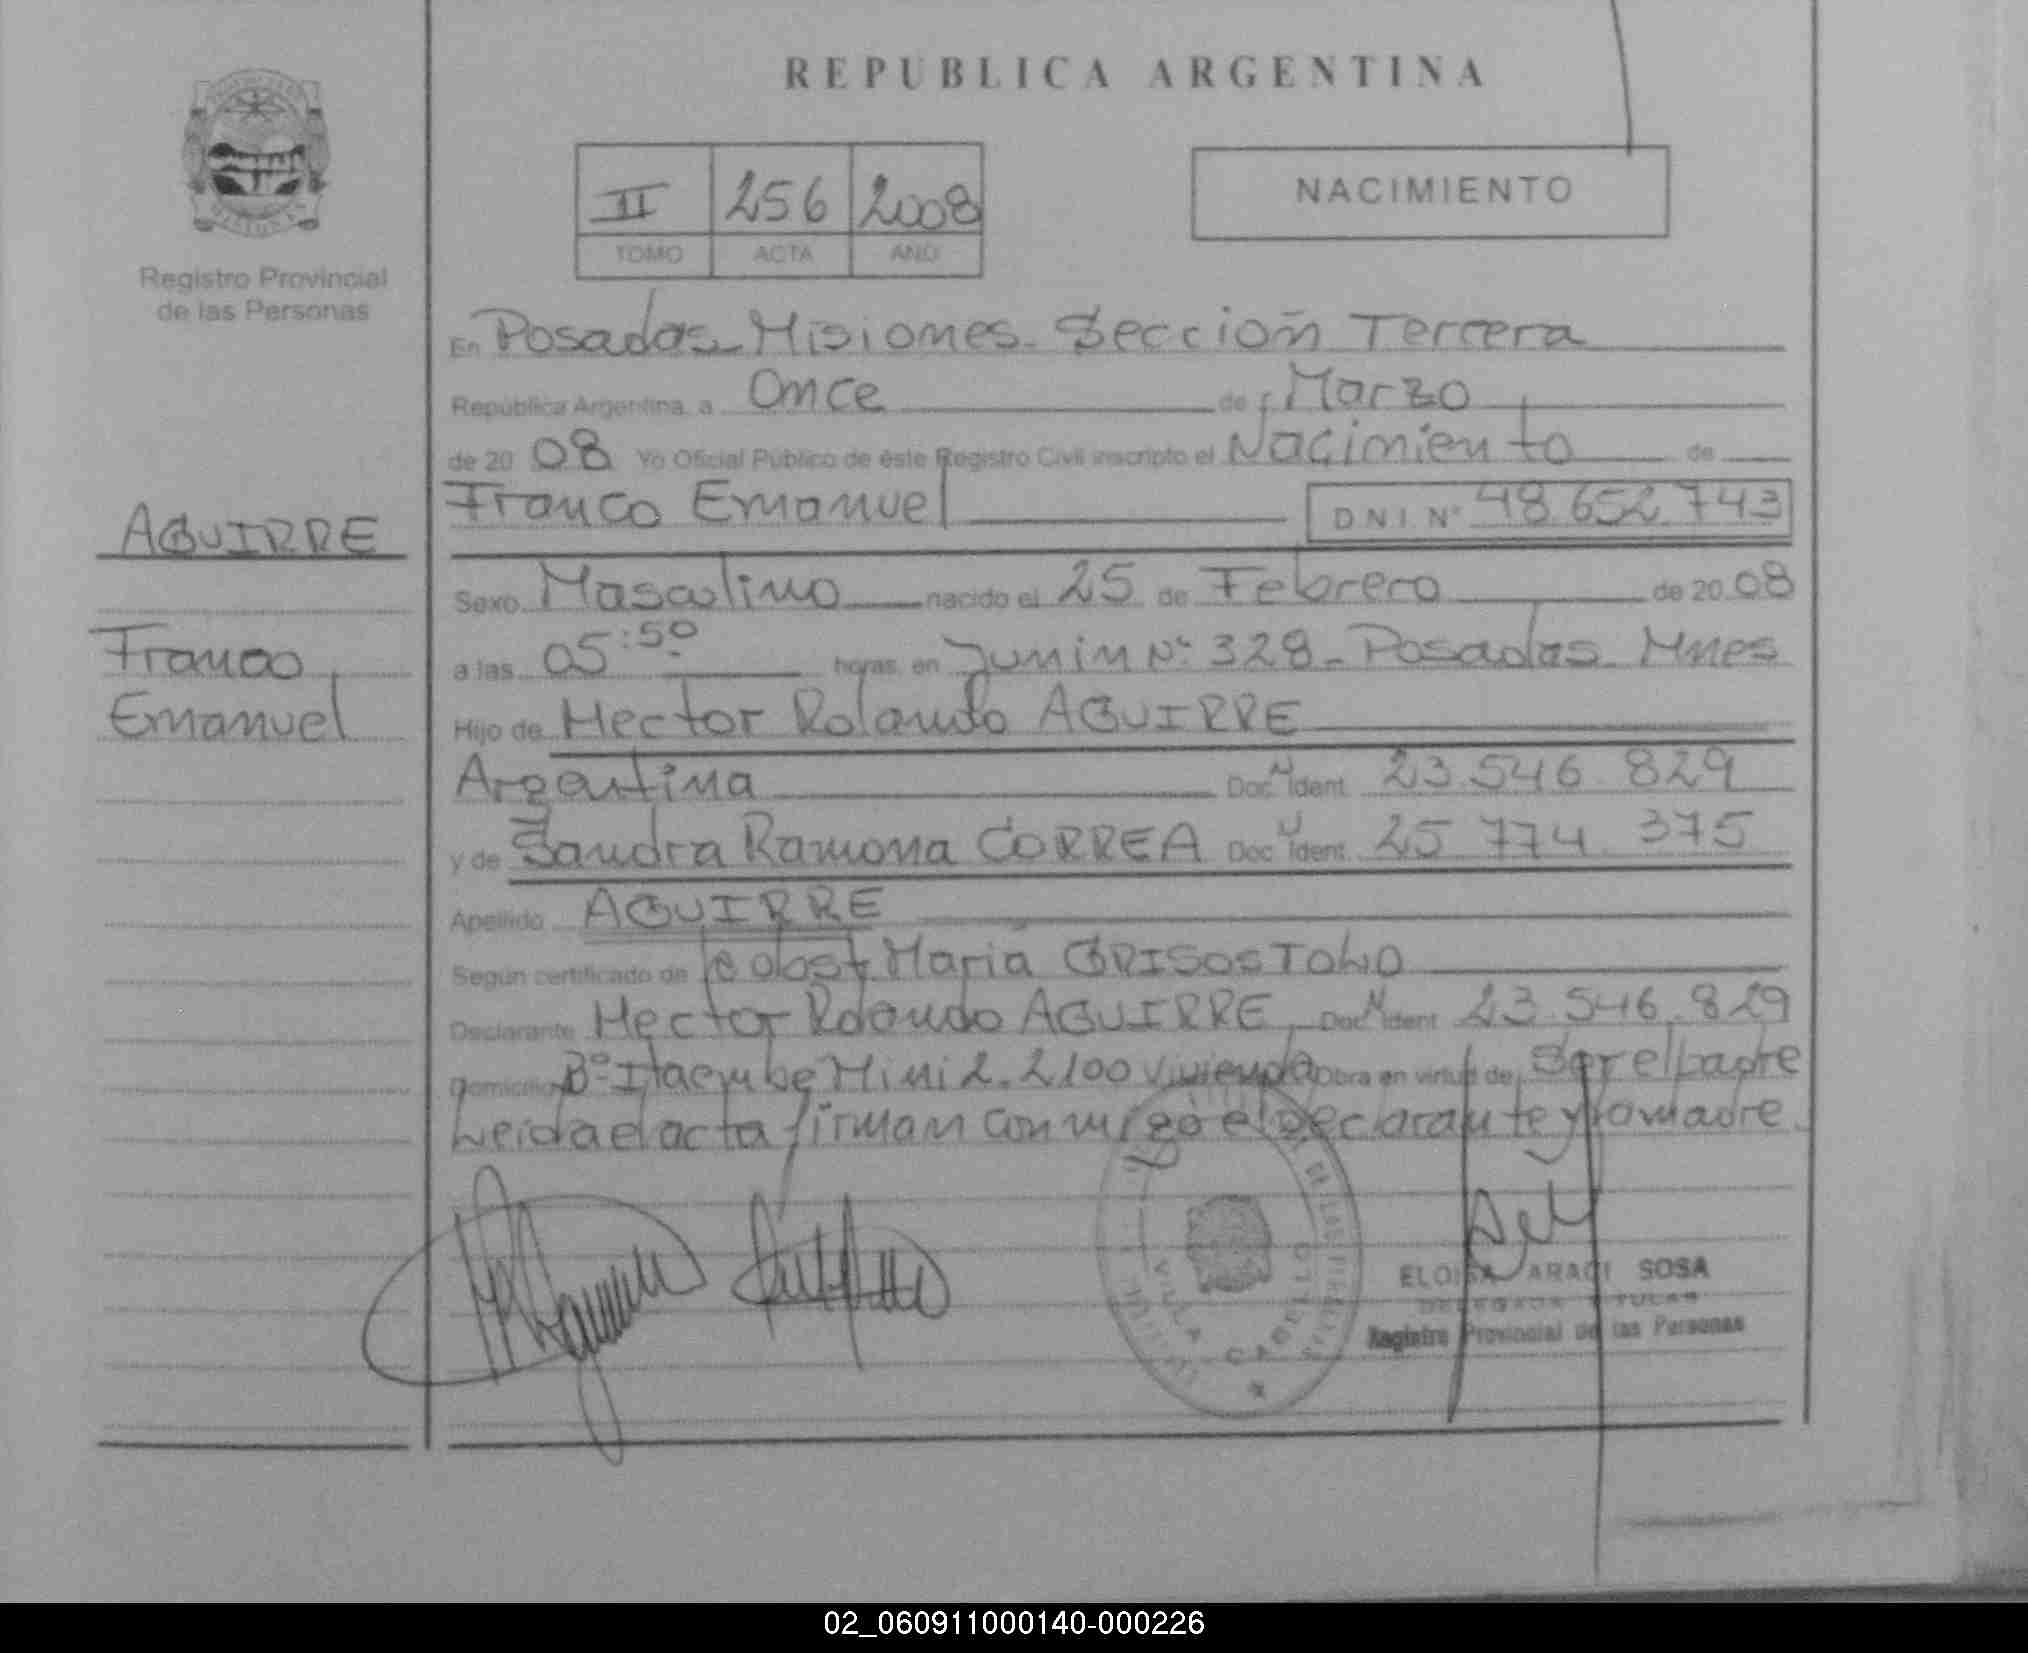 REPUBLICA ARGENTINA
II 256 2008
TOMO ACTA AÑO
NACIMIENTO
Registro Provincial
de las Personas
AGUIRRE
Franco
Emanuel
En Posadas Misiones. Sección Tercera
República Argentina, a Once de Marzo
de 20 08 Yo Oficial Público de éste Registro Civil inscripto el Nacimiento de
Franco Emanuel DNI Nº 48.652.743
Sexo Masculino nacido el 25 de Febrero de 20 08
a las 05:50 horas, en Junin Nº 328 - Posadas Mnes
Hijo de Hector Rolando AGUIRRE
Argentina Doc. N Ident. 23.546.829
y de Sandra Ramona CORREA Doc. N Ident. 25 774 375
Apellido AGUIRRE
Según certificado de obst. Maria GRISOSTOMO
Declarante Hector Rolando AGUIRRE, Doc. N Ident 23.546.829
Domicilio Bº Itaembe Mini 2. 2100 Vivienda Obra en virtud de Ser el padre
Leida el acta firman conmigo el declarante y la madre.
DE LAS PERSONAS
VILLA CABELLO
ELOISA ARACI SOSA
DELEGADA TITULAR
Registro Provincial de las Personas
02_060911000140-000226